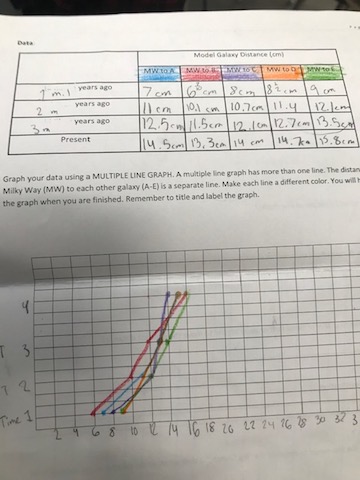 Data
Model Galaxy Distance (cm)
MW to A MW to B MW to C MW to D MW to E
years ago 7 cm cm 8cm cm 9 cm
2 m years ago 11 cm 10.1 cm 10.7cm 11.4 12.1cm
3m years ago 12.5cm 11.5cm 12.1cm 12.7cm 13.5cm
Present 14.5cm 13.3cm 14 cm 14.7cm 15.8cm
Graph your data using a MULTIPLE LINE GRAPH. A multiple line graph has more than one line. The distan
Milky Way (MW) to each other galaxy (A-E) is a separate line. Make each line a different color. You will
the graph when you are finished. Remember to title and label the graph.
4
T 3
2
Time 1
2 4 6 8 10 12 14 16 18 20 22 24 26 28 30 32 3